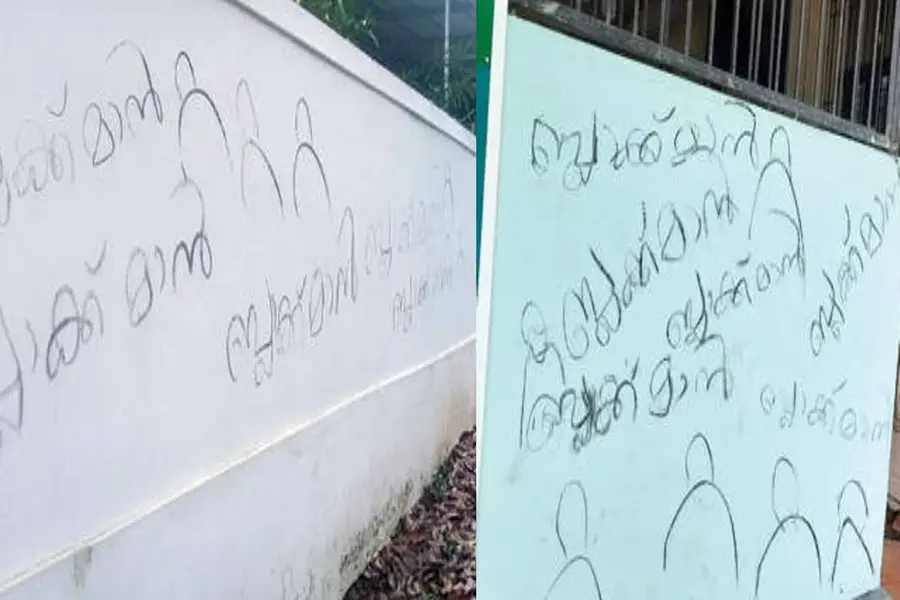 ബ്ലാക്ക് മാൻ
ബ്ലാക്ക് മാൻ
ബ്ലാക്ക് മാൻ
ബ്ലാക്ക് മാൻ
ബ്ലാക്ക് മാൻ
ബ്ലാക്ക് മാൻ
ബ്ലാക്ക് മാൻ
ബ്ലാക്ക് മാൻ
ബ്ലാക്ക് മാൻ
ബ്ലാക്ക് മാൻ
ബ്ലാക്ക് മാൻ